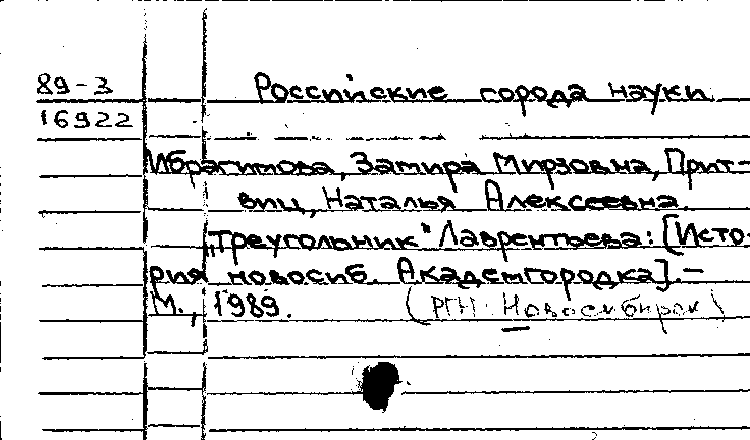 89-3 Российские города науки
16922
Ибрагимова, Замира Мирзовна, Прит-
виц, Наталья Алексеевна.
„Треугольник" Лаврентьева: [Исто-
рия новосиб. Академгородка].—
М., 1989. (РГН: Новосибирск)